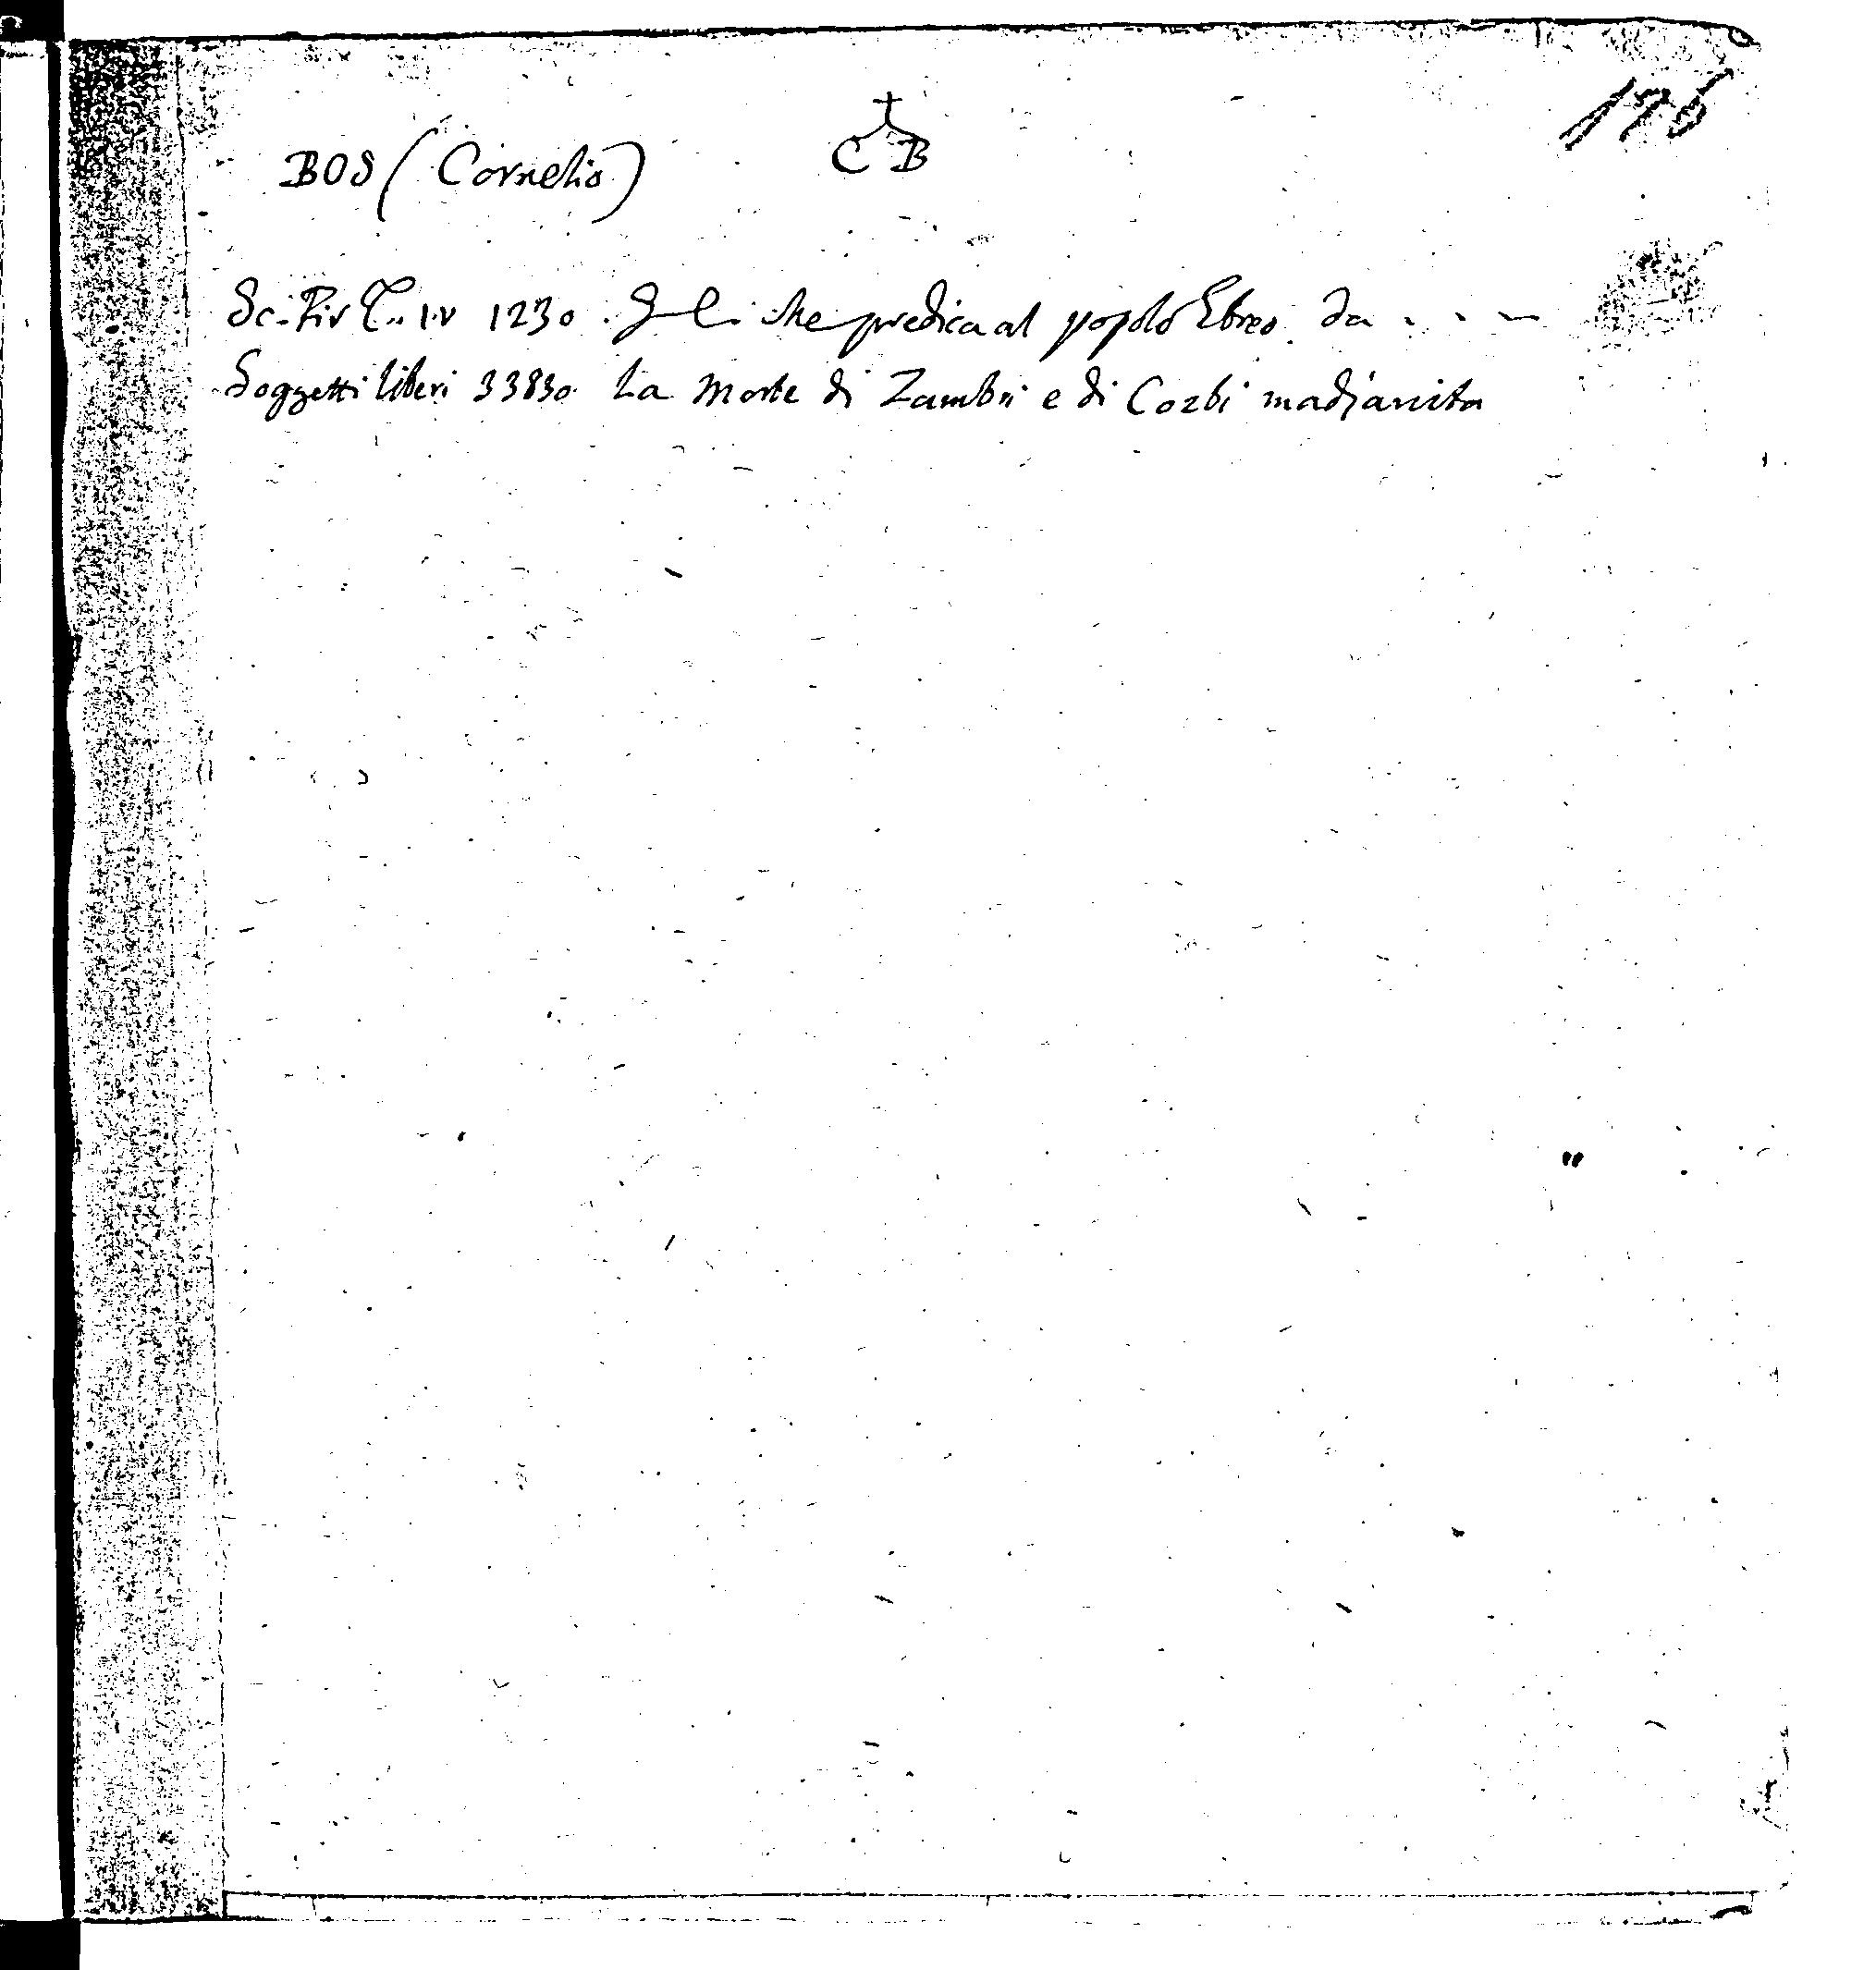 176
BOS (Cornelio) C B
1230. che predica al popolo Ebreo da . . . 
Soggetti liberi 33830 La Morte di Zambri e di Cozbi madianita